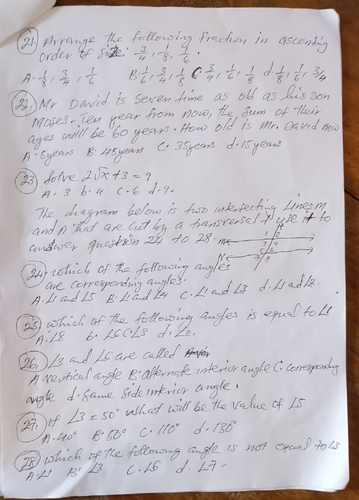 21. Arrange the following fraction in ascending
order of size: 3/4, 1/8, 1/6.
A. 1/8, 3/4, 1/6 B. 1/6, 3/4, 1/8 C. 3/4, 1/6, 1/8 d. 1/8, 1/6, 3/4
22. Mr David is seven time as old as his son
Moses. Ten year from now, the sum of their
ages will be 60 years. How old is Mr. David now
A. 5 years B. 45 years C. 35 years d. 15 years
23. Solve 2√x + 3 = 9
A. 3 b. 4 C. 6 d. 9.
The diagram below is two intersecting Lines M
and N that are cut by a transversal. Use it to
answer question 24 to 28.
24. which of the following angles
are corresponding angles.
A. ∠1 and ∠5 B. ∠1 and ∠4 C. ∠1 and ∠3 d. ∠1 and ∠2.
25. which of the following angles is equal to ∠1
A. ∠8 b. ∠6 C. ∠3 d. ∠2.
26. ∠3 and ∠6 are called
A. vertical angle B. alternate interior angle C. corresponding
angle d. same side interior angle.
27. If ∠3 = 50° what will be the value of ∠5
A. 40° B. 50° C. 110° d. 130°
28. which of the following angle is not equal to
A. ∠1 B. ∠3 C. ∠6 d. ∠7.